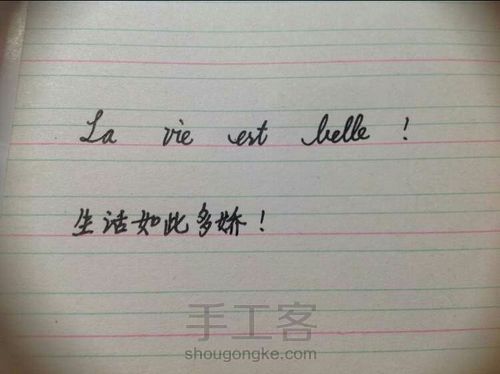 La vie est belle !
生活如此多娇！
手工客
shougongke.com